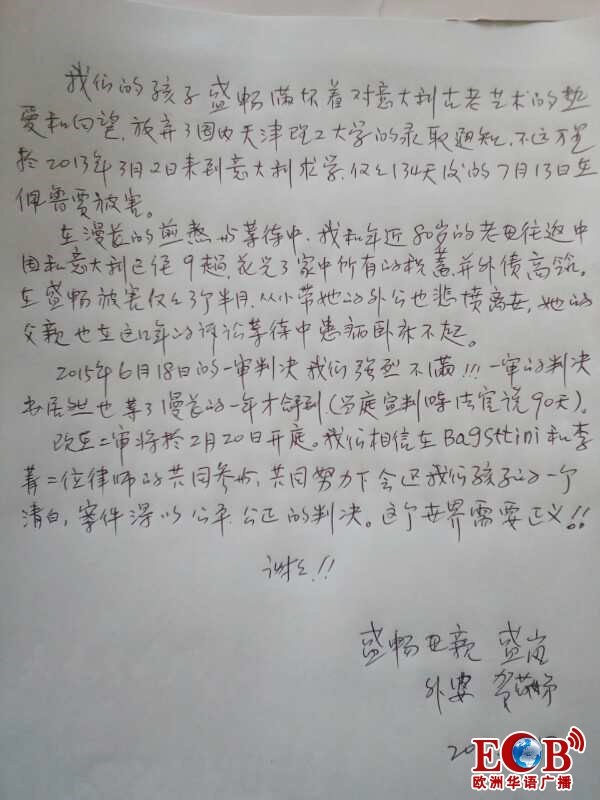 我们的孩子盛畅满怀着对意大利古老艺术的热
爱和向望，放弃了国内天津理工大学的录取通知，不远万里
於2013年3月2日来到意大利求学，仅仅134天后的7月13日在
佩鲁贾被害。
在漫长的煎熬与等待中，我和年近80岁的老母往返中
国和意大利已经9趟，花光了家中所有的积蓄，并外债高筑。
在盛畅被害仅仅3个半月，从小带她的外公也悲愤离世，她的
父亲也在这几年的诉讼等待中患病卧床不起。
2015年6月18日的一审判决我们强烈不满!!! 一审的判决
书居然也等了漫长的一年才拿到(当庭宣判时法官说90天)。
现在二审将於2月20日开庭。我们相信在Bagsttini和李
菁二位律师的共同参与，共同努力下会还我们孩子的一个
清白，案件得以公平、公正的判决。这个世界需要正义!!
谢谢!!
盛畅母亲 盛岚
外婆 贺
20
ECB
欧洲华语广播